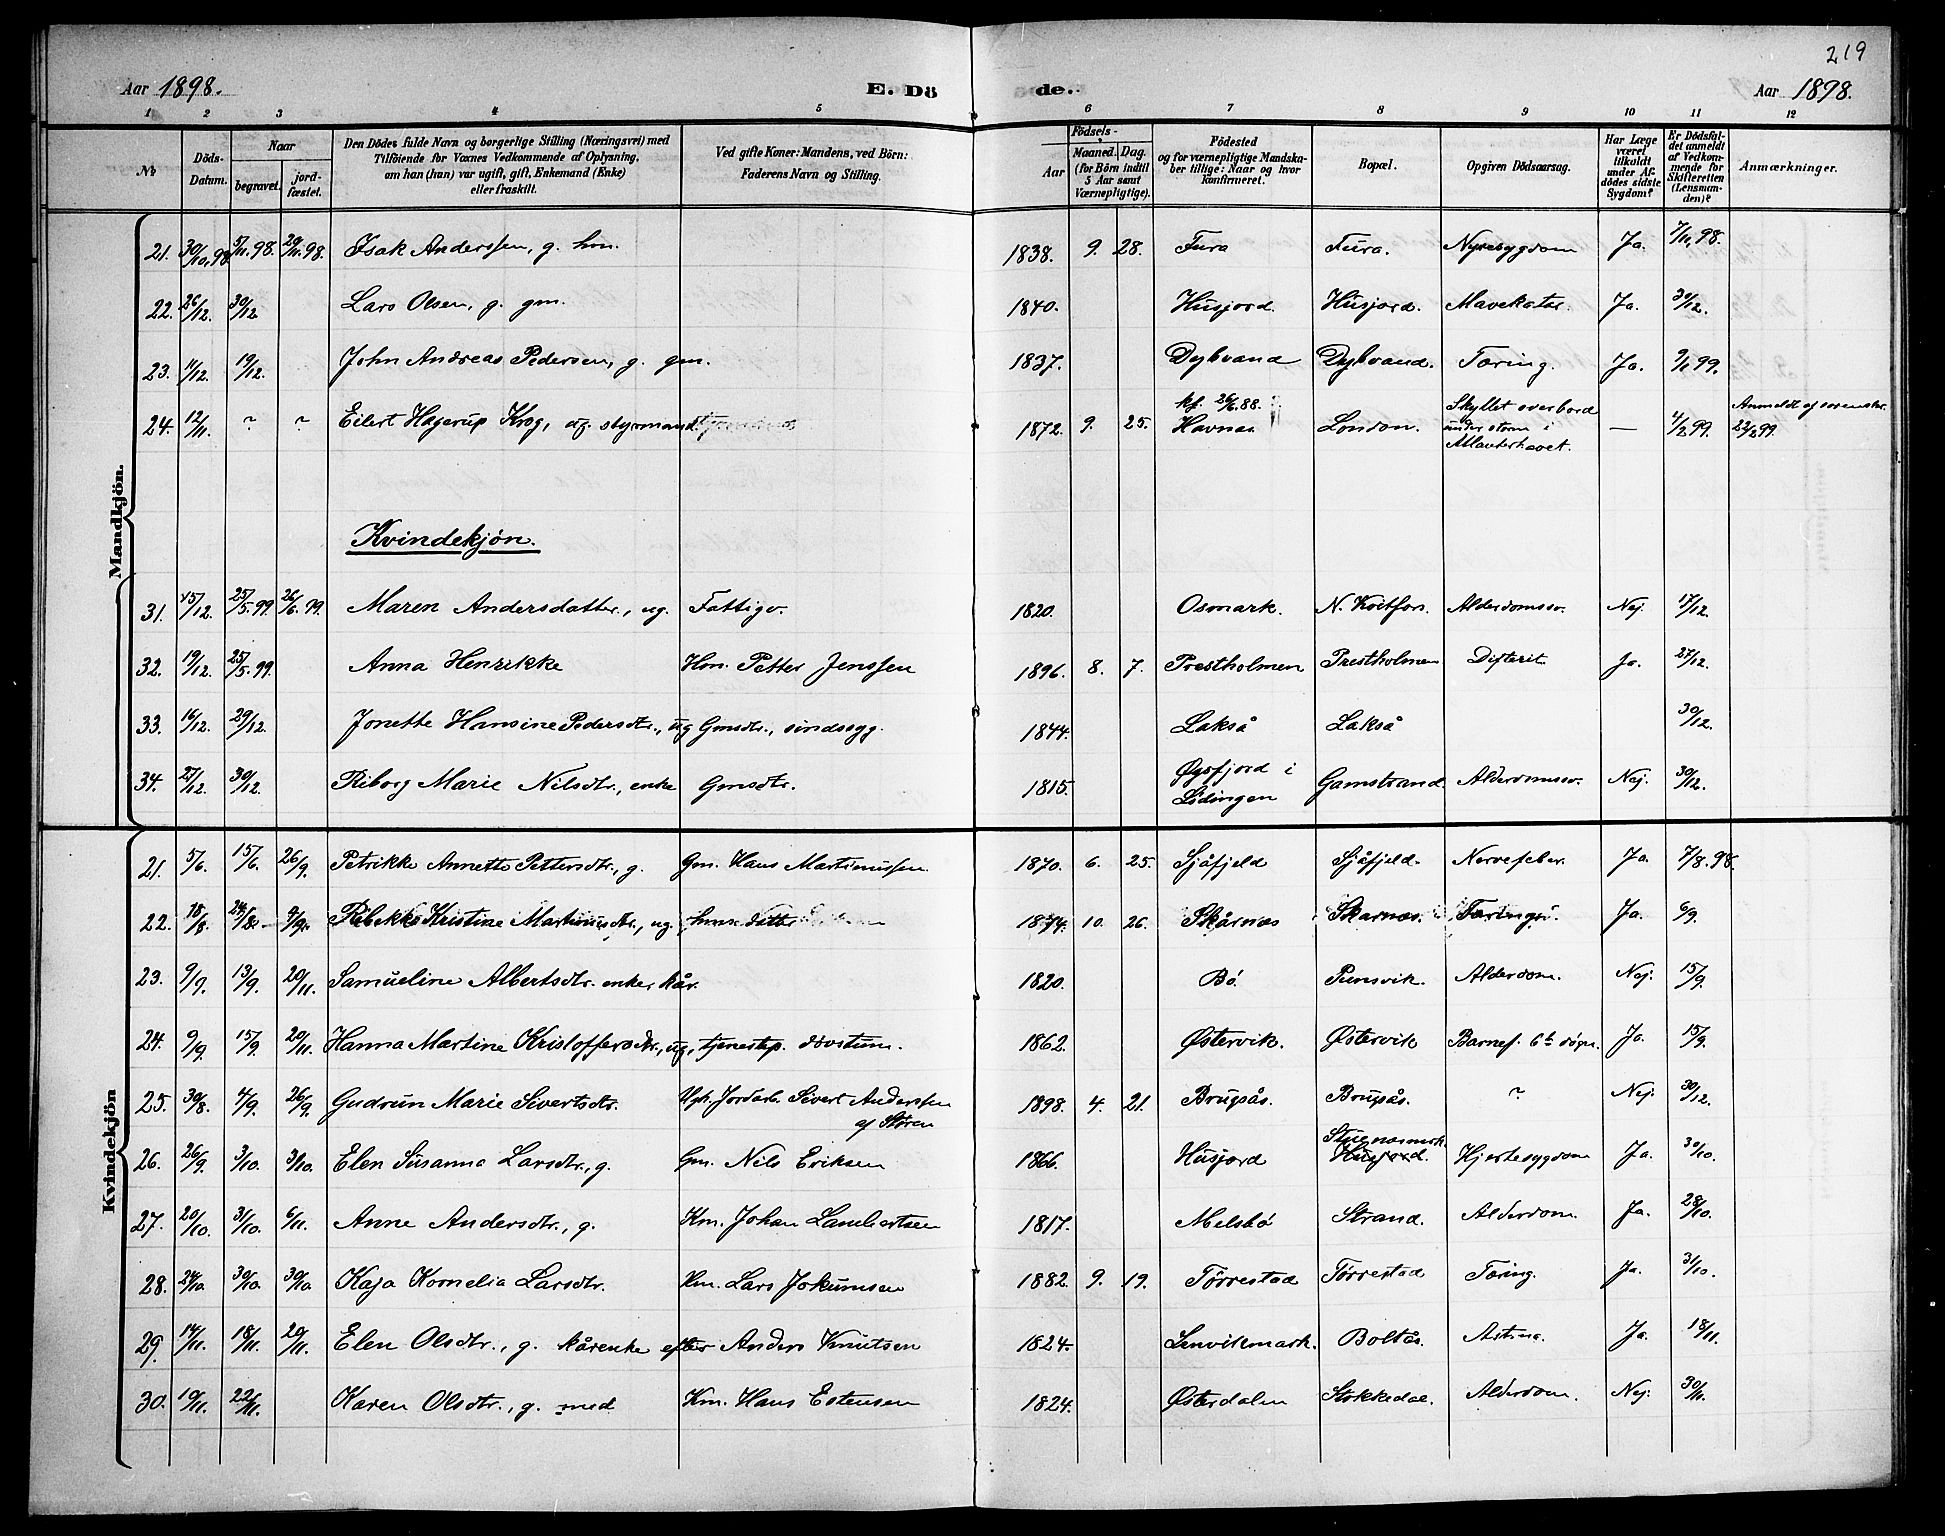 219
Aar 1898. E. Dö de. Aar 1898.
1 2 3 4 5 6 7 8 9 10 11 12
No
Döds-Datum.
Naar
begravet.
jord-fæstet.
Den Dödes fulde Navn og borgerlige Stilling (Næringsvei) med
Tilföiende for Voxnes Vedkommende af Oplysning,
om han (hun) var ugift, gift, Enkemand (Enke)
eller fraskilt.
Ved gifte Koner: Mandens, ved Börn:
Faderens Navn og Stilling.
Födsels-
Aar
Maaned. Dag.
(for Börn indtil
5 Aar samt
Værnepligtige).
Födested
og for værnepligtige Mandska-
ber tillige: Naar og hvor
konfirmeret.
Bopæl.
Opgiven Dödsaarsag.
Har Læge
været
tilkaldt
under Af-
dödes sidste
Sygdom?
Er Dödsfal-
det anmeldt
af Vedkom-
mende for
Skifteretten
(Lensman-
den)?
Anmærkninger.
Mandkjön.
21. 30/10.98 5/11.98. 20/11.98. Isak Anderssen, g. hm. 1838. 9. 28. Fura Fura. Nyresygdom Ja. 7/11.98.
22. 26/12. 30/12 Lars Olsen, g. gm. 1840. Husjord. Husjord. Mavekatar. Ja. 30/12.
23. 11/12. 19/12. John Andreas Pedersen, g. gm. 1837. Dybvand Dybvand. Tæring. Ja. 9/1 99.
24. 12/11. ~ ~ Eilert Hagerup Krog, ug. styrmand 1872. 9. 25. kf. 26/6.88. Havnæs. London. Skyllet overbord under storm i Atlanterhavet. — 4/2 99. Anmeldt af sorenskr. 22/2 99.
Kvindekjön.
31. 15/12. 25/5.99 26/6.99. Maren Andersdatter, ug. Fattigv. 1820. Osmark. N. Kvitfors. Alderdomssv. Nej. 17/12.
32. 19/12. 25/5.99. Anna Henrikke Hm. Petter Jenssen 1896. 8. 7. Prestholmen Prestholmen Difterit. Ja. 27/12.
33. 16/12. 29/12. Jonette Hansine Pedersdtr., ug Gmsdtr., sindssyg. 1844. Lakså Lakså 30/12.
34. 27/12. 30/12. Riborg Marie Nilsdtr., enke Gmsdtr. 1815. Øgsfjord i Lödingen Gamstrand. Alderdomssv. Nej. 30/12.
Kvindekjön
21. 5/6. 15/6. 26/9. Petrikke Annette Pettersdtr., g. Gm. Hans Martinussen. 1870. 6. 25. Sjåfjeld Sjåfjeld. Nervefeber. Ja. 7/8.98.
22. 18/8. 24/8. 4/9. Ribekka Kristine Martinusdtr., ug. hmsdatter 1874. 10. 26. Skårnæs Skarnæs. Tæring. Ja. 6/9.
23. 9/9. 13/9. 20/11. Samueline Albertsdtr. enke, kår. 1820. Bø. Punsvik. Alderdom. Nej. 15/9.
24. 9/9. 15/9. 20/11. Hanna Martine Kristoffersdtr., ug, tjenestep. døvstum. 1862. Østervik. Østervik Barnef. 6te døgn. Ja. 15/9.
25. 30/8. 4/9. 26/9. Gudrun Marie Sivertsdtr. Ugk. Jordarb. Sivert Anderssen af Støren 1898. 4. 21. Brugsås. Brugsås. ~ Nej. 30/12.
26. 26/9. 3/10. 3/10. Elen Susanna Larsdtr., g. Gm. Nils Eriksen 1866. Husjord Stuenæsmark. Husjord. Hjertesygdom Ja. 30/10.
27. 20/10. 31/10. 6/11. Anne Andersdtr., g. Km. Johan Lambertsen 1817. Melsbø Strand. Alderdom. Ja. 28/10.
28. 24/10. 30/10. 30/10. Kaja Kornelia Larsdtr. Hm. Lars Jokumsen 1882. 9. 19. Tørrestad Tørrestad Tæring. Ja. 31/10.
29. 14/11. 18/11. 20/11. Elen Olsdtr., g. kårenke efter Anders Knutsen 1824. Lenvikmark. Boltås. Astma. Ja. 18/11.
30. 19/11. 22/11. Karen Olsdtr., g. med Km. Hans Estensen 1824. Østerdalen Stokkedal. Alderdom. Nej. 30/11.